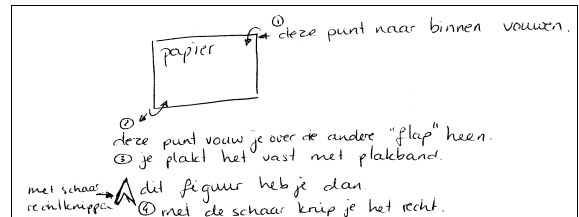 ① deze punt naar binnen vouwen.
papier
②
deze punt vouw je over de andere "flap" heen.
③ je plakt het vast met plakband.
met schaar
rechtknippen
dit figuur heb je dan.
④ met de schaar knip je het recht.